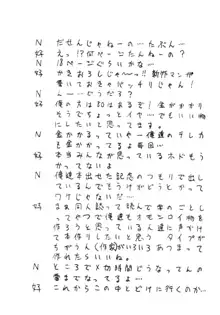 N だせんじゃねーの…たぶん…
好 えっ!?何ページこんだんねーの?
N 18ページぐらいかな…
好 かきおろしじゃ〜っ!!新作マンガ
書いておきゃバッチリじゃん!
N んー…どうだろ?
好 俺の方は80はあるぞ!金がかかり
そうでちょっとイヤ…でもいい物
にしたいと思ってます。
N 金かかるっていやー俺達のテレカ
も金かかってるよ毎回…
好 本当みんなが思っているホドもう
かってないよ
N 俺達本出せた記念のつもりで出し
ているんでもうけがどうとかって
ワケじゃないだ…
好 まぁ同人誌って読んで字のごとし
ってやつで俺達もオモシロイ物を
作ろうと思っている人達に声かけ
て本作りしたいと思う タイプが
ちがうん(作家)がいろいろあつまって
作れたらいいね。
N ところで〆切時間どうなってんの
書までなってるよ…
好 これからこの中とどけに行くのか…